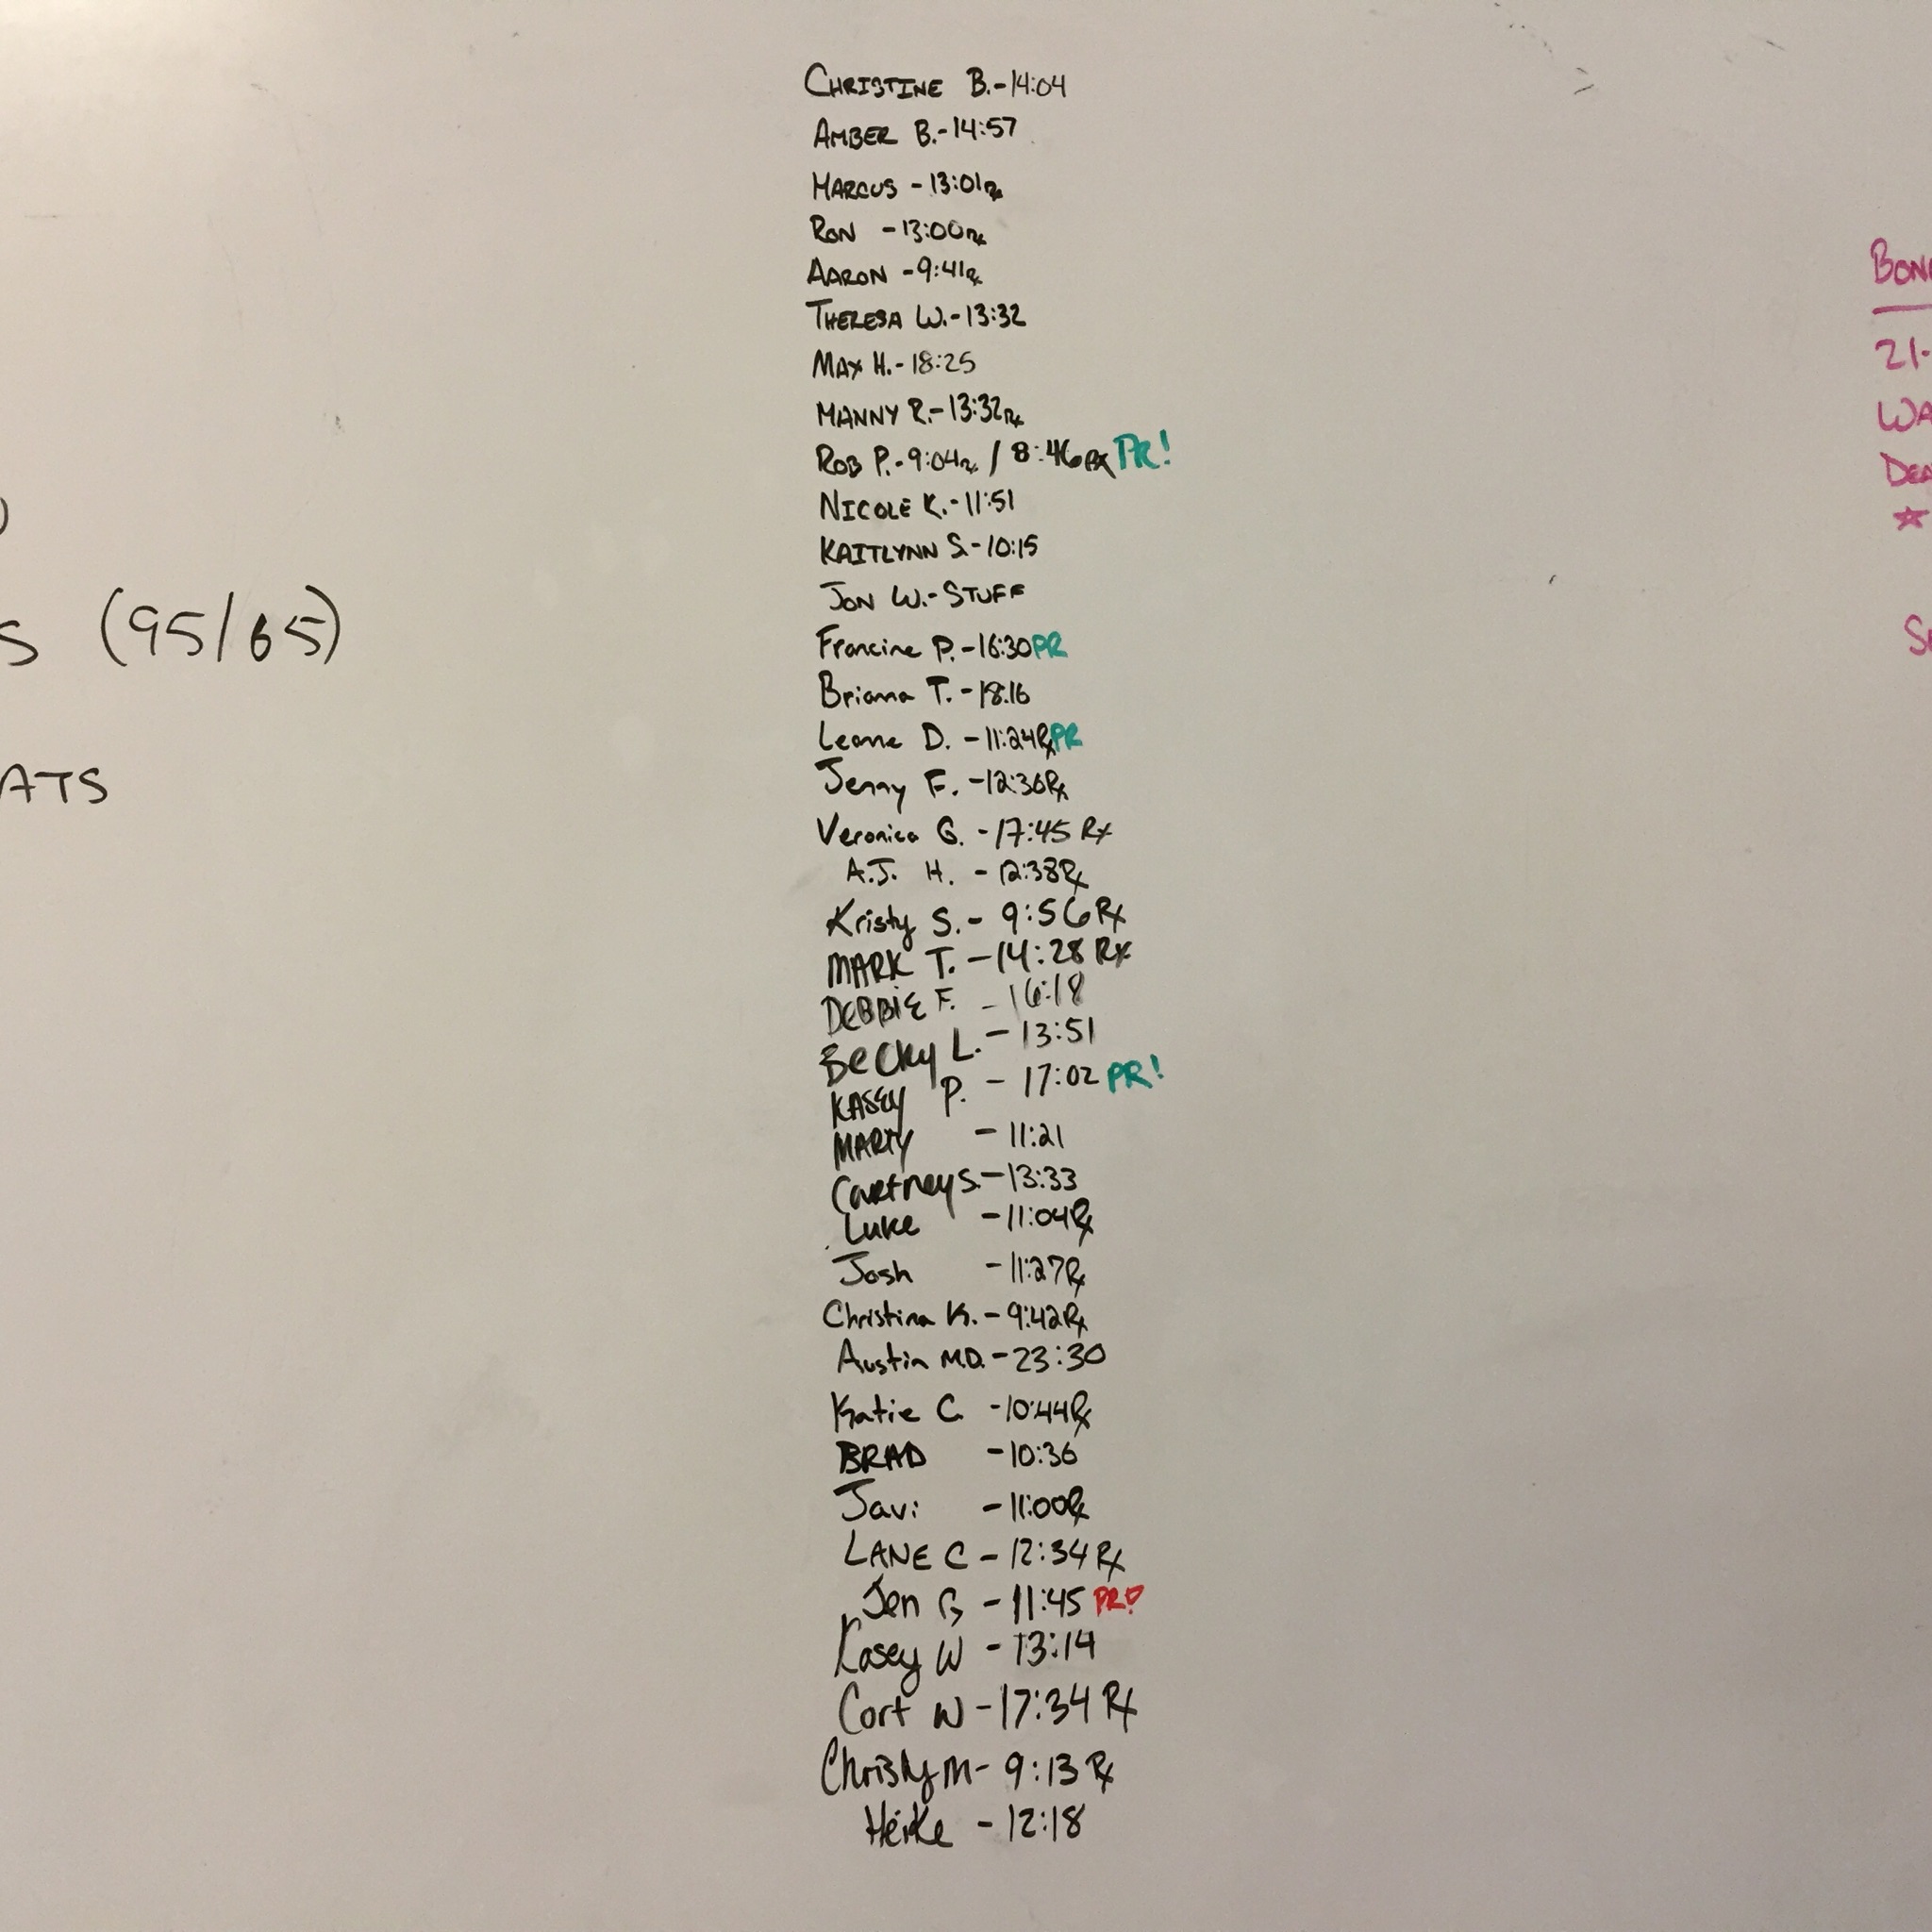 CHRISTINE B.-14:04
AMBER B.-14:57
MARCUS - 13:01Rx
RON - 13:00Rx
AARON - 9:41Rx
THERESA W.-13:32
MAX H.- 18:25
MANNY R.- 13:32Rx
ROB P.- 9:04Rx / 8:46Rx PR!
NICOLE K.- 11:51
KAITLYNN S.- 10:15
JON W.- STUFF
Francine P. - 16:30 PR
Brianna T. - 18:16
Leanne D. - 11:24Rx PR
Jenny F. - 12:36Rx
Veronica G. - 17:45 Rx
A.J. H. - 12:38Rx
Kristy S. - 9:56 Rx
MARK T. - 14:28 Rx
DEBBIE F. - 16:18
BeCky L. - 13:51
KASEY P. - 17:02 PR!
MARTY - 11:21
Courtney S. - 13:33
Luke - 11:04Rx
Josh - 11:27Rx
Christina K. - 9:42Rx
Austin M.D. - 23:30
Katie C. - 10:44Rx
BRAD - 10:36
Javi - 11:00Rx
LANE C - 12:34 Rx
Jen G - 11:45 PR!
Kasey W - 13:14
Cort W - 17:34 Rx
Christy M - 9:13 Rx
Heike - 12:18
S (95/65)
ATS
BON
21-
WA
DEA
☆
S